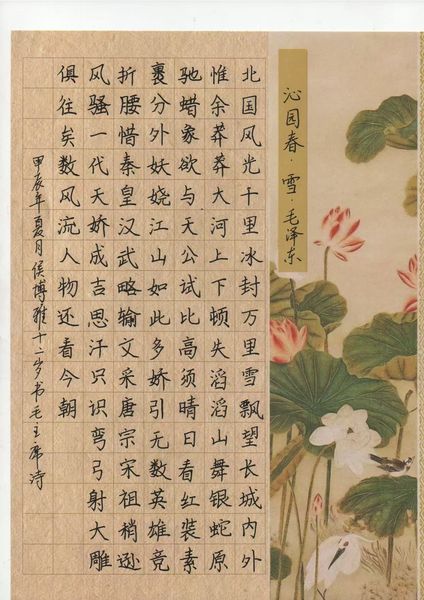 沁园春·雪·毛泽东
北国风光千里冰封万里雪飘望长城内外
惟余莽莽大河上下顿失滔滔山舞银蛇原
驰蜡象欲与天公试比高须晴日看红装素
裹分外妖娆江山如此多娇引无数英雄竞
折腰惜秦皇汉武略输文采唐宗宋祖稍逊
风骚一代天娇成吉思汗只识弯弓射大雕
俱往矣数风流人物还看今朝
甲辰年夏月侯博雅十二岁书毛主席诗